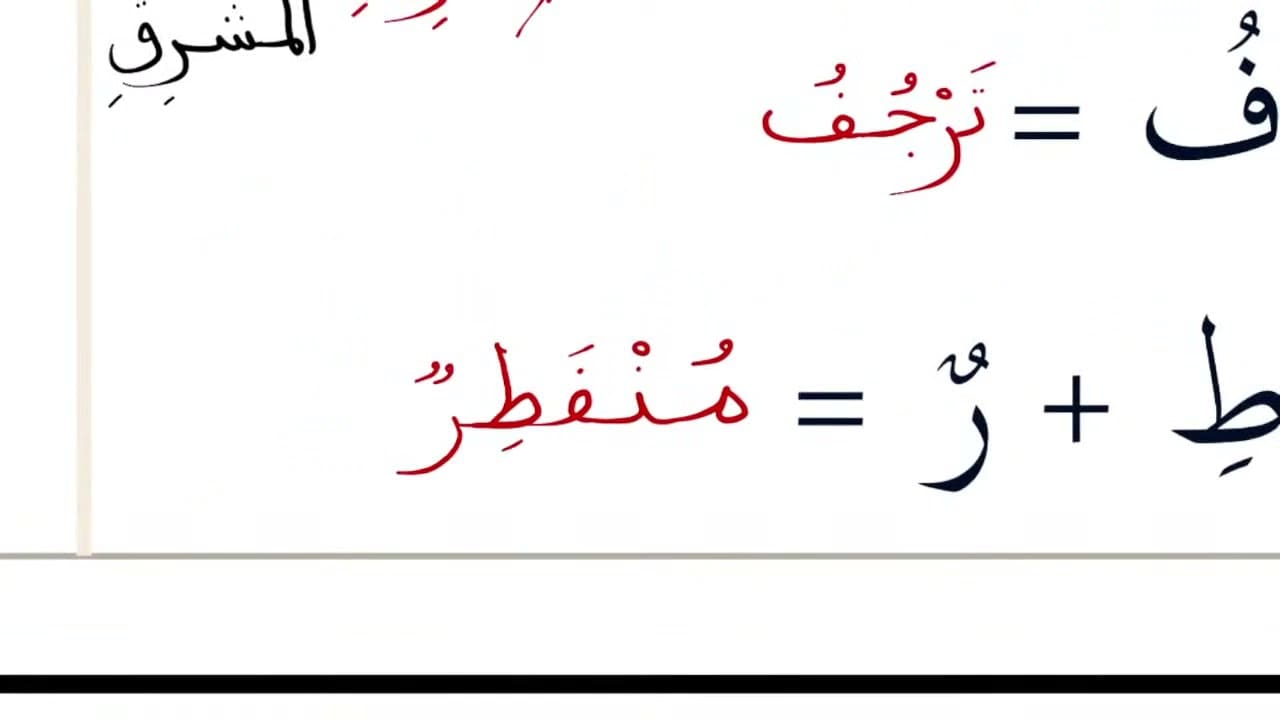 المشرقِ
فُ = تَرْجُفُ
طِ + رٌ = مُنْفَطِرٌ